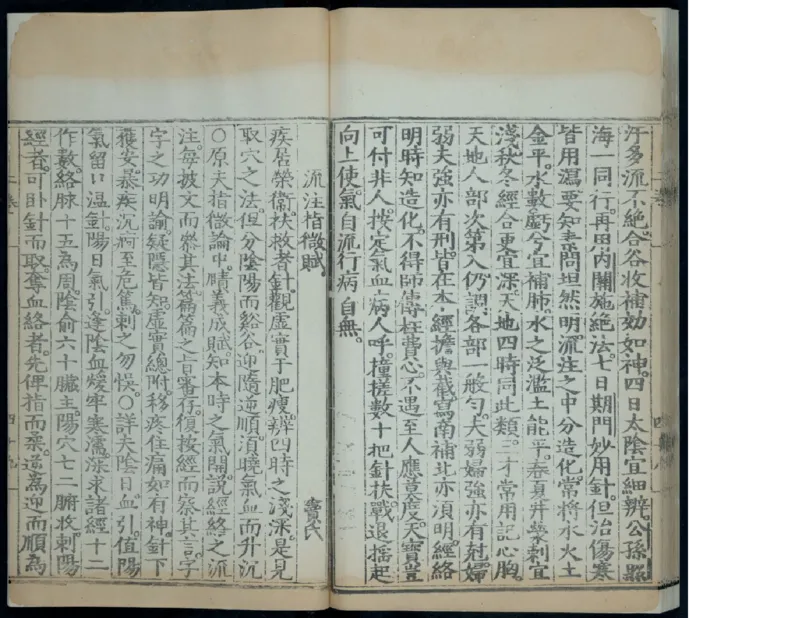 汗多流不絶合谷收補効如神四日太陰宜細辨公孫照
海一同行再用内關施絶法七日期門妙用針但治傷寒
皆用瀉要知素問坦然明流注之中分造化常將水火土
金平水數虧兮宜補肺水之泛濫土能平春夏井滎刺宜
淺秋冬經合更宜深天地四時同此類三才常用記心胸
天地人部次第入仍調各部一般勻夫弱婦強亦有尅婦
弱夫強亦有刑皆在本經擔與截寫南補北亦須明經絡
明時知造化不得師傳枉費心不遇至人應莫度天寶豈
可付非人按定氣血病人呼撞搓數十把針扶戰退搖起
向上使氣自流行病自無
流注指微賦　竇氏
疾居榮衛扶救者針觀虛實于肥瘦辨四時之淺深是見
取穴之法但分陰陽而谿谷迎隨逆順須曉氣血而升沉
○原夫指微論中賾義成賦知本時之氣開說經絡之流
注每披文而參其法篇篇之旨審存復按經而察其言字
字之功明諭疑隱皆知虛實總附移疾住痛如有神針下
獲安暴疾沉疴至危篤刺之勿悞○詳夫陰日血引值陽
氣留口溫針陽日氣引逢陰血煖牢寒濡深求諸經十二
作數絡脉十五為周陰俞六十臟主陽穴七二腑收刺陽
經者可卧針而取奪血絡者先俾指而柔逆為迎而順為